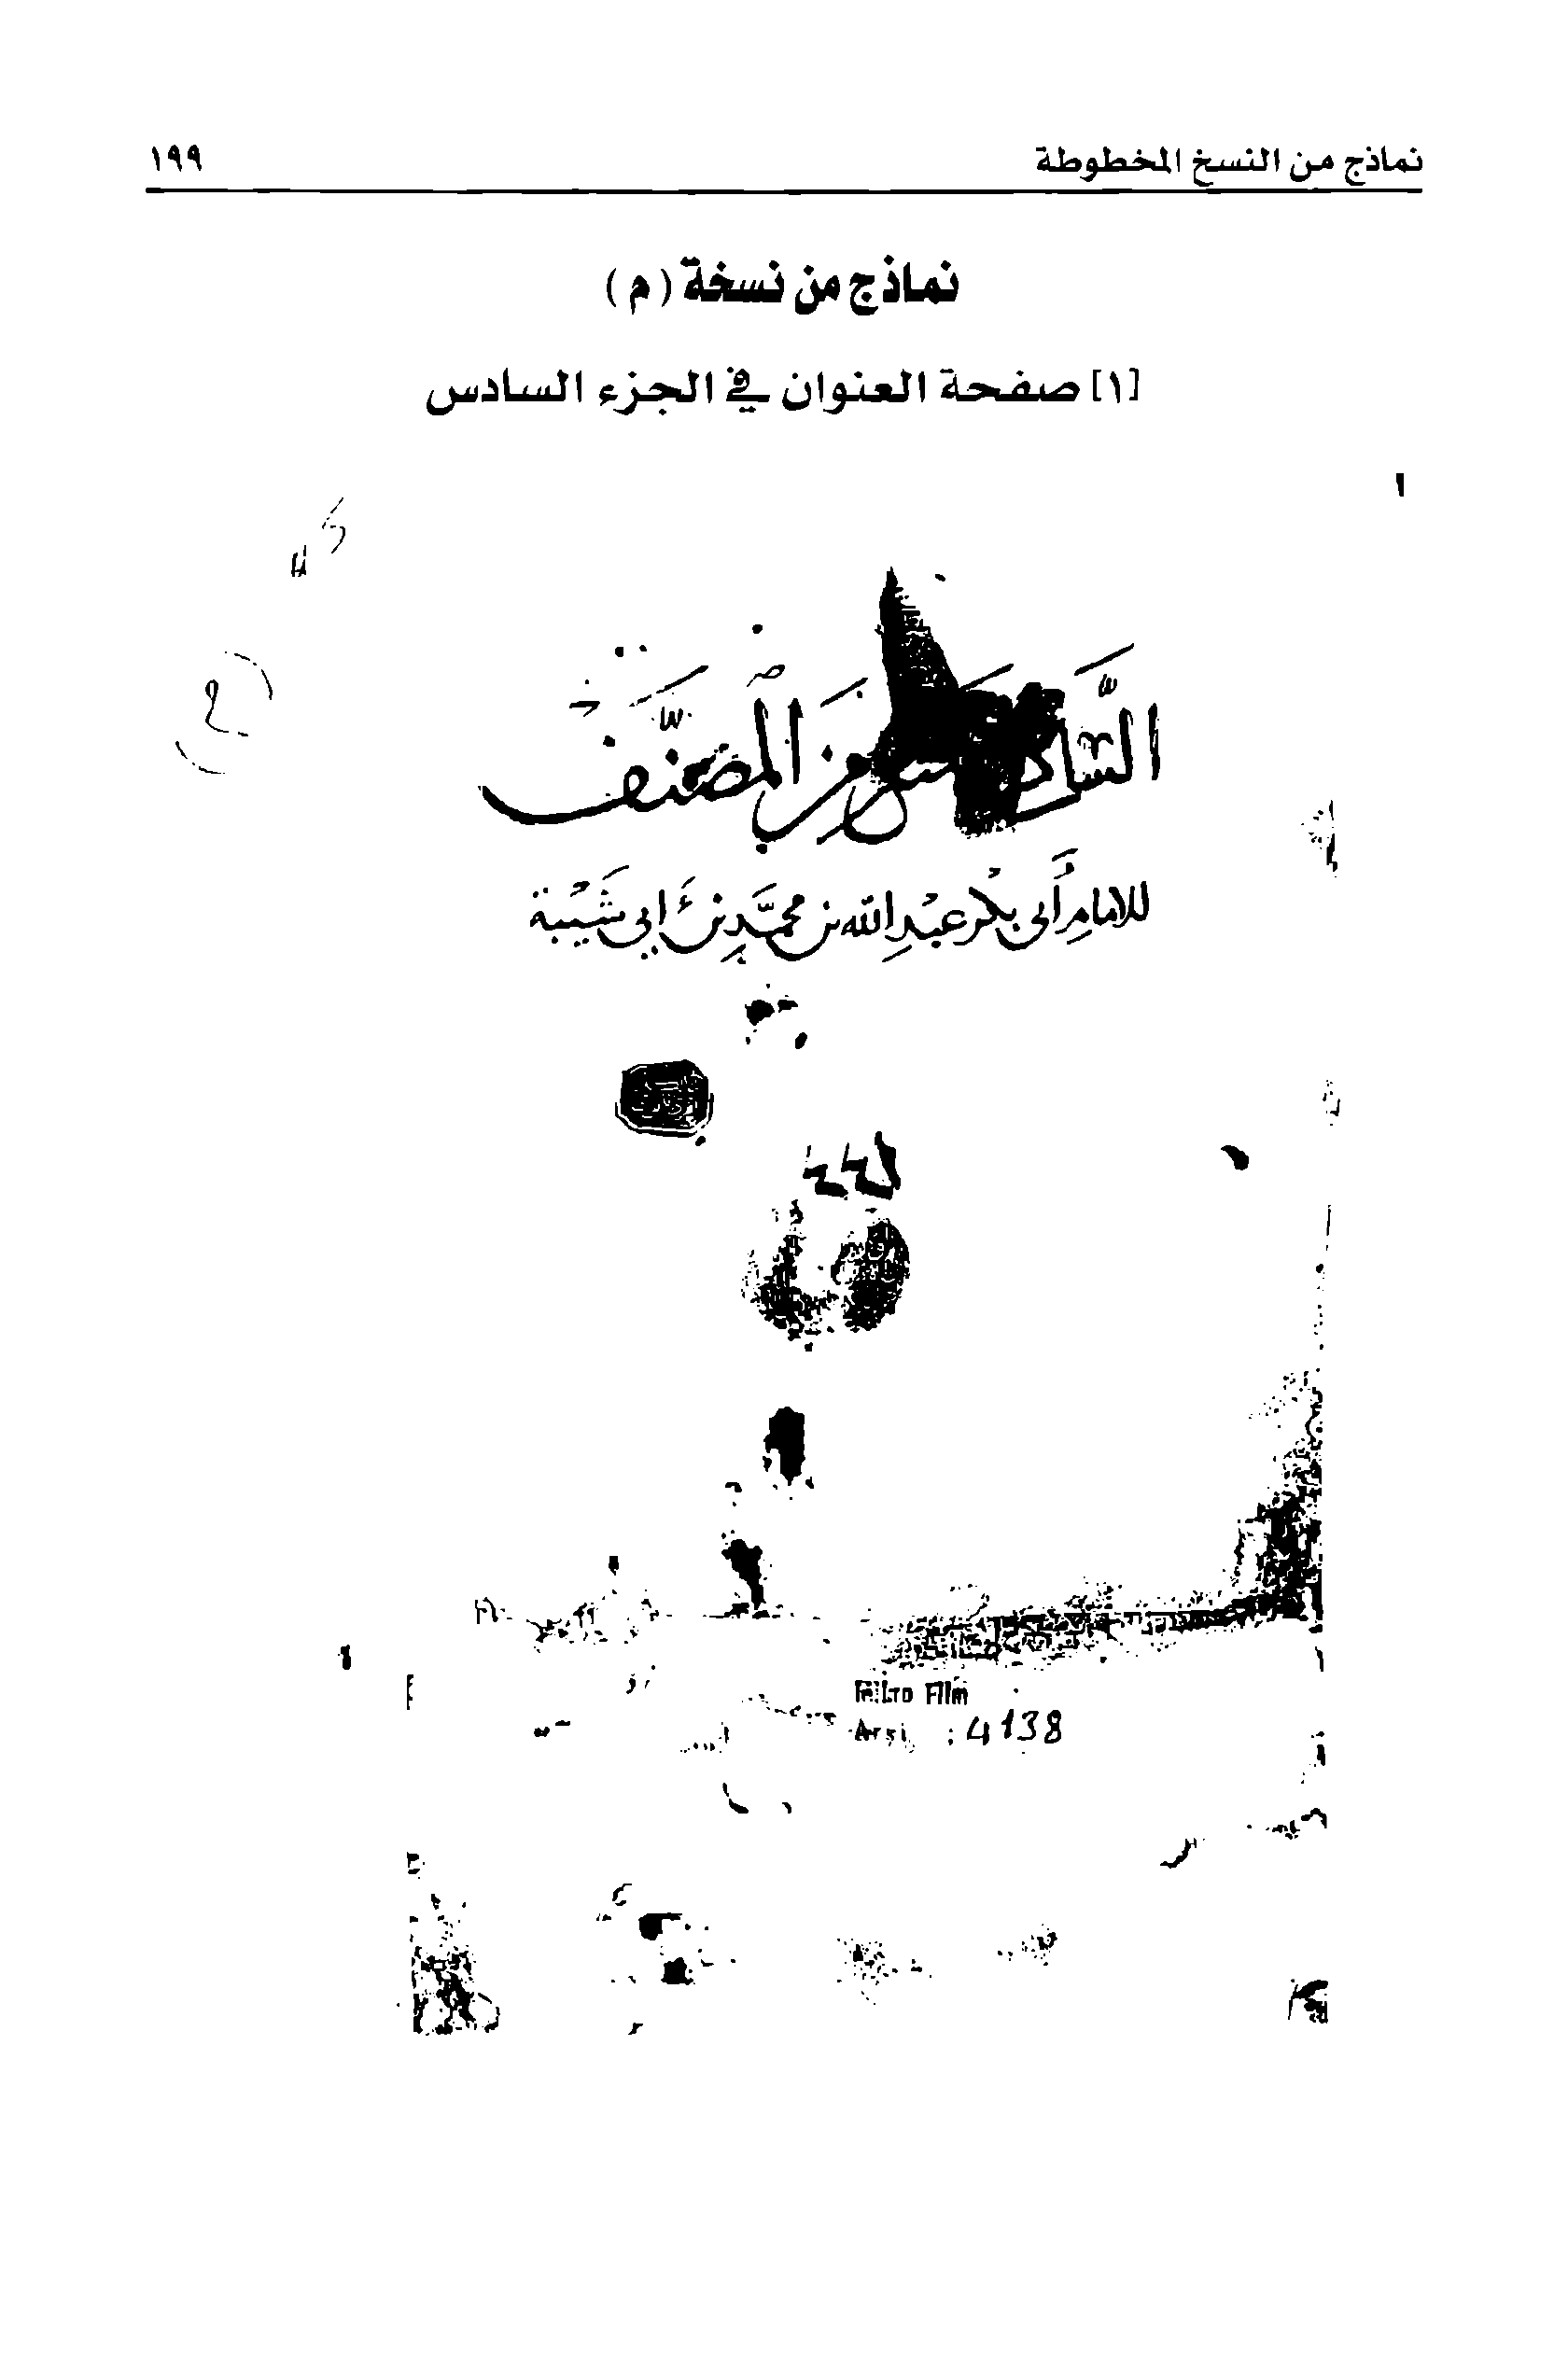 نماذج من النسخ المخطوطة ١٩٩
نماذج من نسخة (م)
[١] صفحة العنوان في الجزء السادس
السَّادس من المصَنَّف
للامامِ أبى بكر عبدِ الله بن محمَّدِ بن أبي شَيْبَة
Mikro Film
Arşiv : 4138